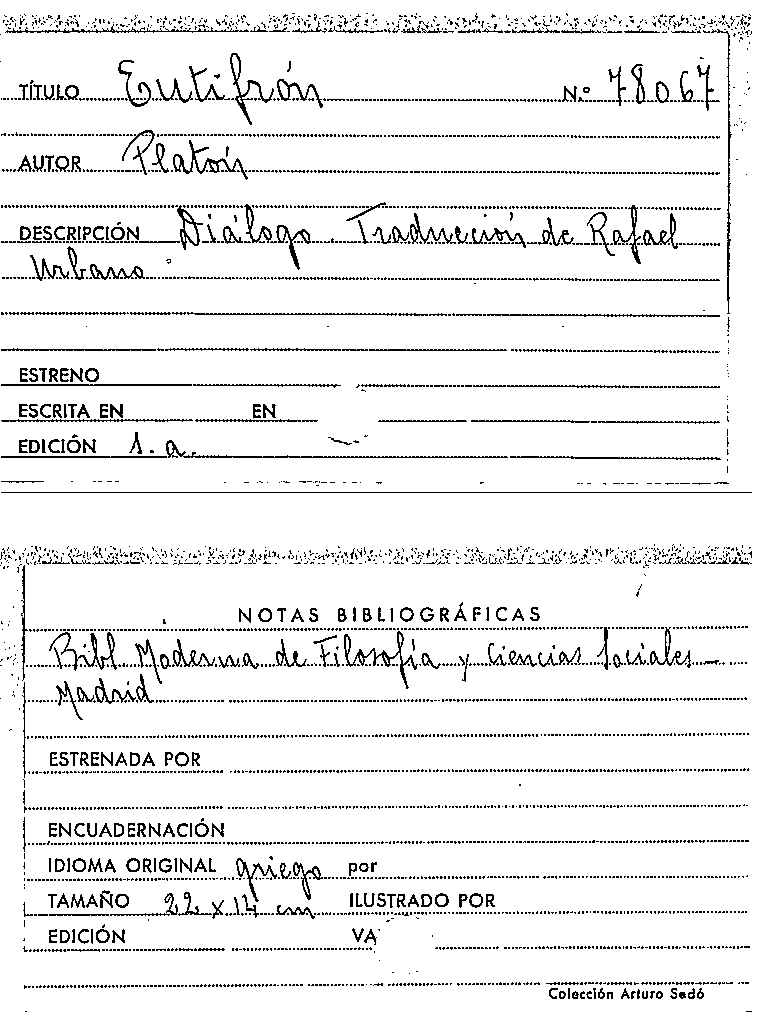 TÍTULO Eutifrón N.º 78067
AUTOR Platón
DESCRIPCIÓN Diálogo. Traducción de Rafael
Urbano.
ESTRENO
ESCRITA EN EN
EDICIÓN s. a.
NOTAS BIBLIOGRÁFICAS
Bibl Moderna de Filosofía y Ciencias Sociales —
Madrid
ESTRENADA POR
ENCUADERNACIÓN
IDIOMA ORIGINAL griego por
TAMAÑO 22 x 14 cm ILUSTRADO POR
EDICIÓN VA
Colección Arturo Sedó